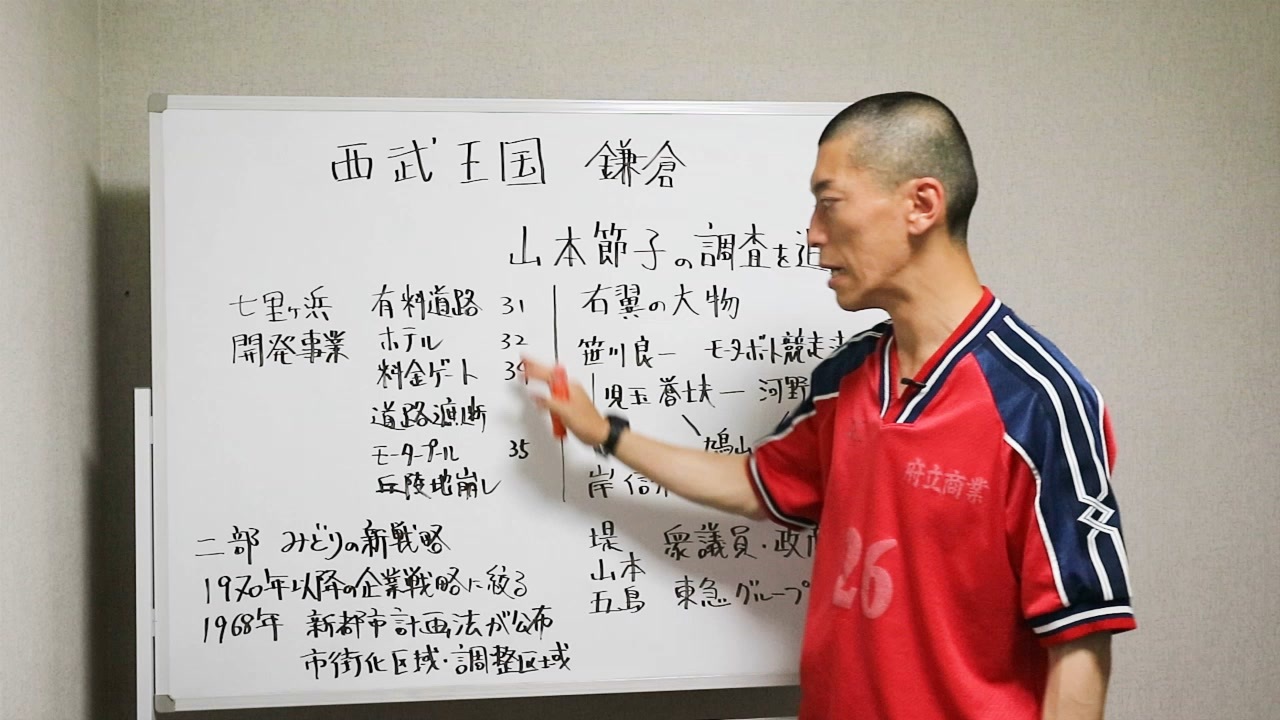 西武王国 鎌倉
山本節子の調査を追
七里ヶ浜 有料道路 31
開発事業 ホテル 32
料金ゲート 34
道路遮断
モータープール 35
丘陵地崩し
右翼の大物
笹川良一 モーターボート競走
児玉誉士夫 ー 河野
鳩山
岸信
二部 みどりの新戦略
1970年以降の企業戦略に絞る
1968年 新都市計画法が公布
市街化区域・調整区域
堤 衆議員・政
山本
五島 東急グループ
府立商業
26